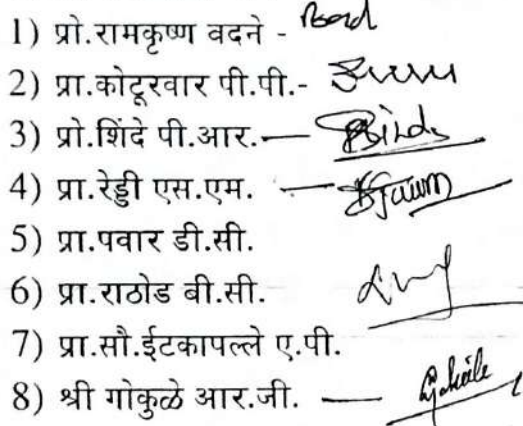 1) प्रो.रामकृष्ण वदने -
2) प्रा.कोटूरवार पी.पी.-
3) प्रो.शिंदे पी.आर.—
4) प्रा.रेड्डी एस.एम. —
5) प्रा.पवार डी.सी.
6) प्रा.राठोड बी.सी.
7) प्रा.सौ.ईटकापल्ले ए.पी.
8) श्री गोकुळे आर.जी. —